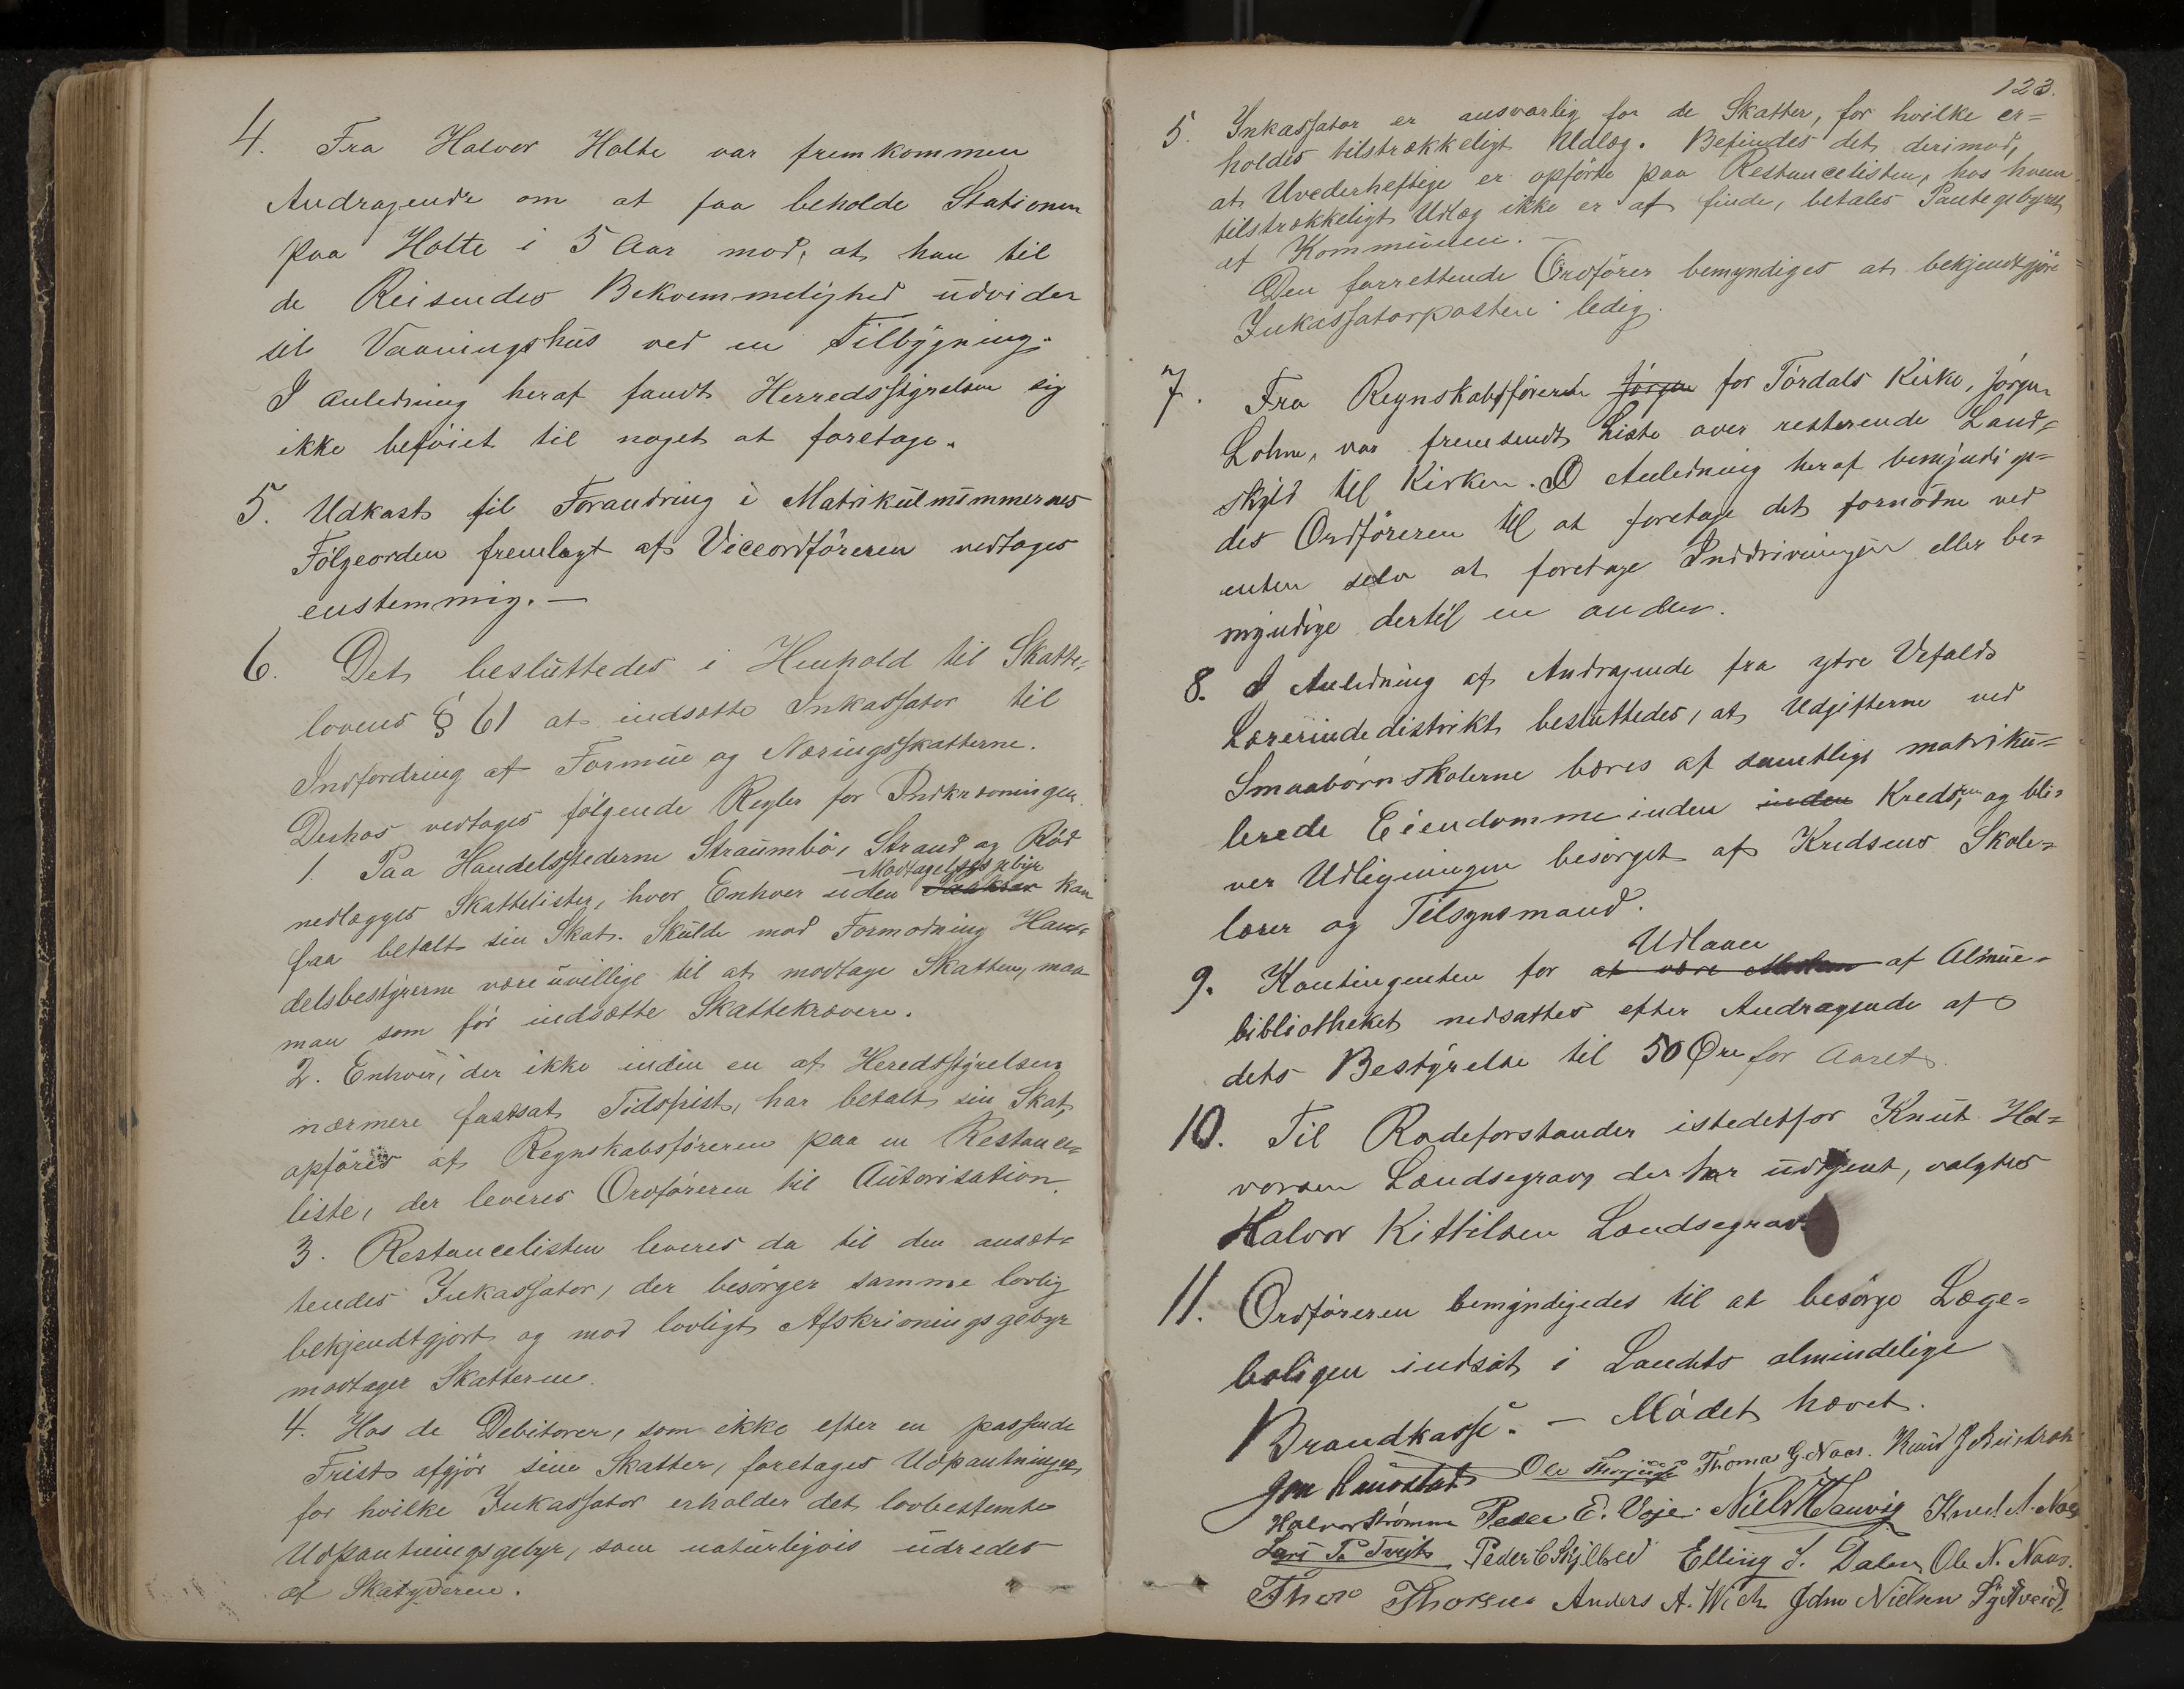 4. Fra Halvor Holte var fremkommen
Andragende om at faa beholde Stationen
paa Holte i 5 Aar mod, at han til
de Reisendes Bekvemmelighed udvider
sit Vaaningshus ved en Tilbygning.
I Anledning heraf fandt Herredsstyrelsen sig
ikke beføiet til noget at foretage.
5. Udkast til Forandring i Matrikulnummernes
Følgeorden fremlagt af Viceordføreren vedtoges
enstemmig. —
6. Det besluttedes i Henhold til Skatte=
lovens § 61 at indsætte Inkassator til
Indfordring af Formue og Næringsskatterne.
Derhos vedtoges følgende Regler for Indkrævningen.
1. Paa Handelsstederne Straumbø, Strand og Rød
nedlægges Skattelister, hvor Enhver uden Modtagelsesgebyr kan
faa betalt sin Skat. Skulde mod Formodning Han=
delsbestyrerne være uvillige til at modtage Skatten, maa
man som før indsætte Skattekrævere.
2. Enhver, der ikke inden en af Heredsstyrelsen
nærmere fastsat Tidsfrist, har betalt sin Skat,
opføres af Regnskabsføreren paa en Restance=
liste, der leveres Ordføreren til Autorisation.
3. Restancelisten leveres da til den ansæt=
tendes Inkassator, der besørger samme lovlig
bekjendtgjort og mod lovligt Afskrivningsgebyr
modtager Skatterne.
4. Hos de Debitorer, som ikke efter en passende
Frist afgjør sine Skatter, foretages Udpantninger,
for hvilke Inkassator erholder det lovbestemte
Udpantningsgebyr, som naturligvis udredes
af Skatyderen.
123.
5. Inkassator er ansvarlig for de Skatter, for hvilke er=
holdes tilstrækkeligt Udlæg. Befindes det derimod,
at Uvederheftige er opførte paa Restancelisten, hos hvem
tilstrækkeligt Udlæg ikke er at finde, betales Pantegebyret
af Kommunen. —
Den forrettende Ordfører bemyndiges at bekjendtgjøre
Inkassatorposten ledig.
7. Fra Regnskabsføreren Jørgen for Tørdals Kirke, Jørgen
Lohne, var fremsendt Liste over resterende Land=
skyld til Kirken. I Anledning heraf bemyndige=
des Ordføreren til at foretage det fornødne ved
enten selv at foretage Inddrivningen eller be=
myndige dertil en anden.
8. I Anledning af Andragende fra ytre Vefalds
Lærerindedistrikt besluttedes, at Udgifterne ved
Smaabørnskolerne bæres af samtlige matriku=
lerede Eiendomme inden inden Kredsen, og bli=
ver Udligningen besørget af Kredsens Skole=
lærer og Tilsynsmand.
9. Kontingenten for at være Udlaan af Almue=
bibliotheket nedsattes efter Andragende af
dets Bestyrelse til 50 Øre for Aaret.
10. Til Rodeforstander istedetfor Knut Hal=
vorsen Landsegrav, der har udtjent, valgtes
Halvor Kittilsen Landsegrav.
11. Ordføreren bemyndigedes til at besørge Læge=
boligen indsat i Landets almindelige
Brandkasse. — Mødet hævet.
Thomas G. Naas.
Halvor Strømme Peder E. Voje. Niels Hauvig Knud A. Naas
Lars Tveit Peder C Skjelbred Elling J. Dalen Ole N. Naas.
Thor Thorsen Anders A. Wick John Nielsen